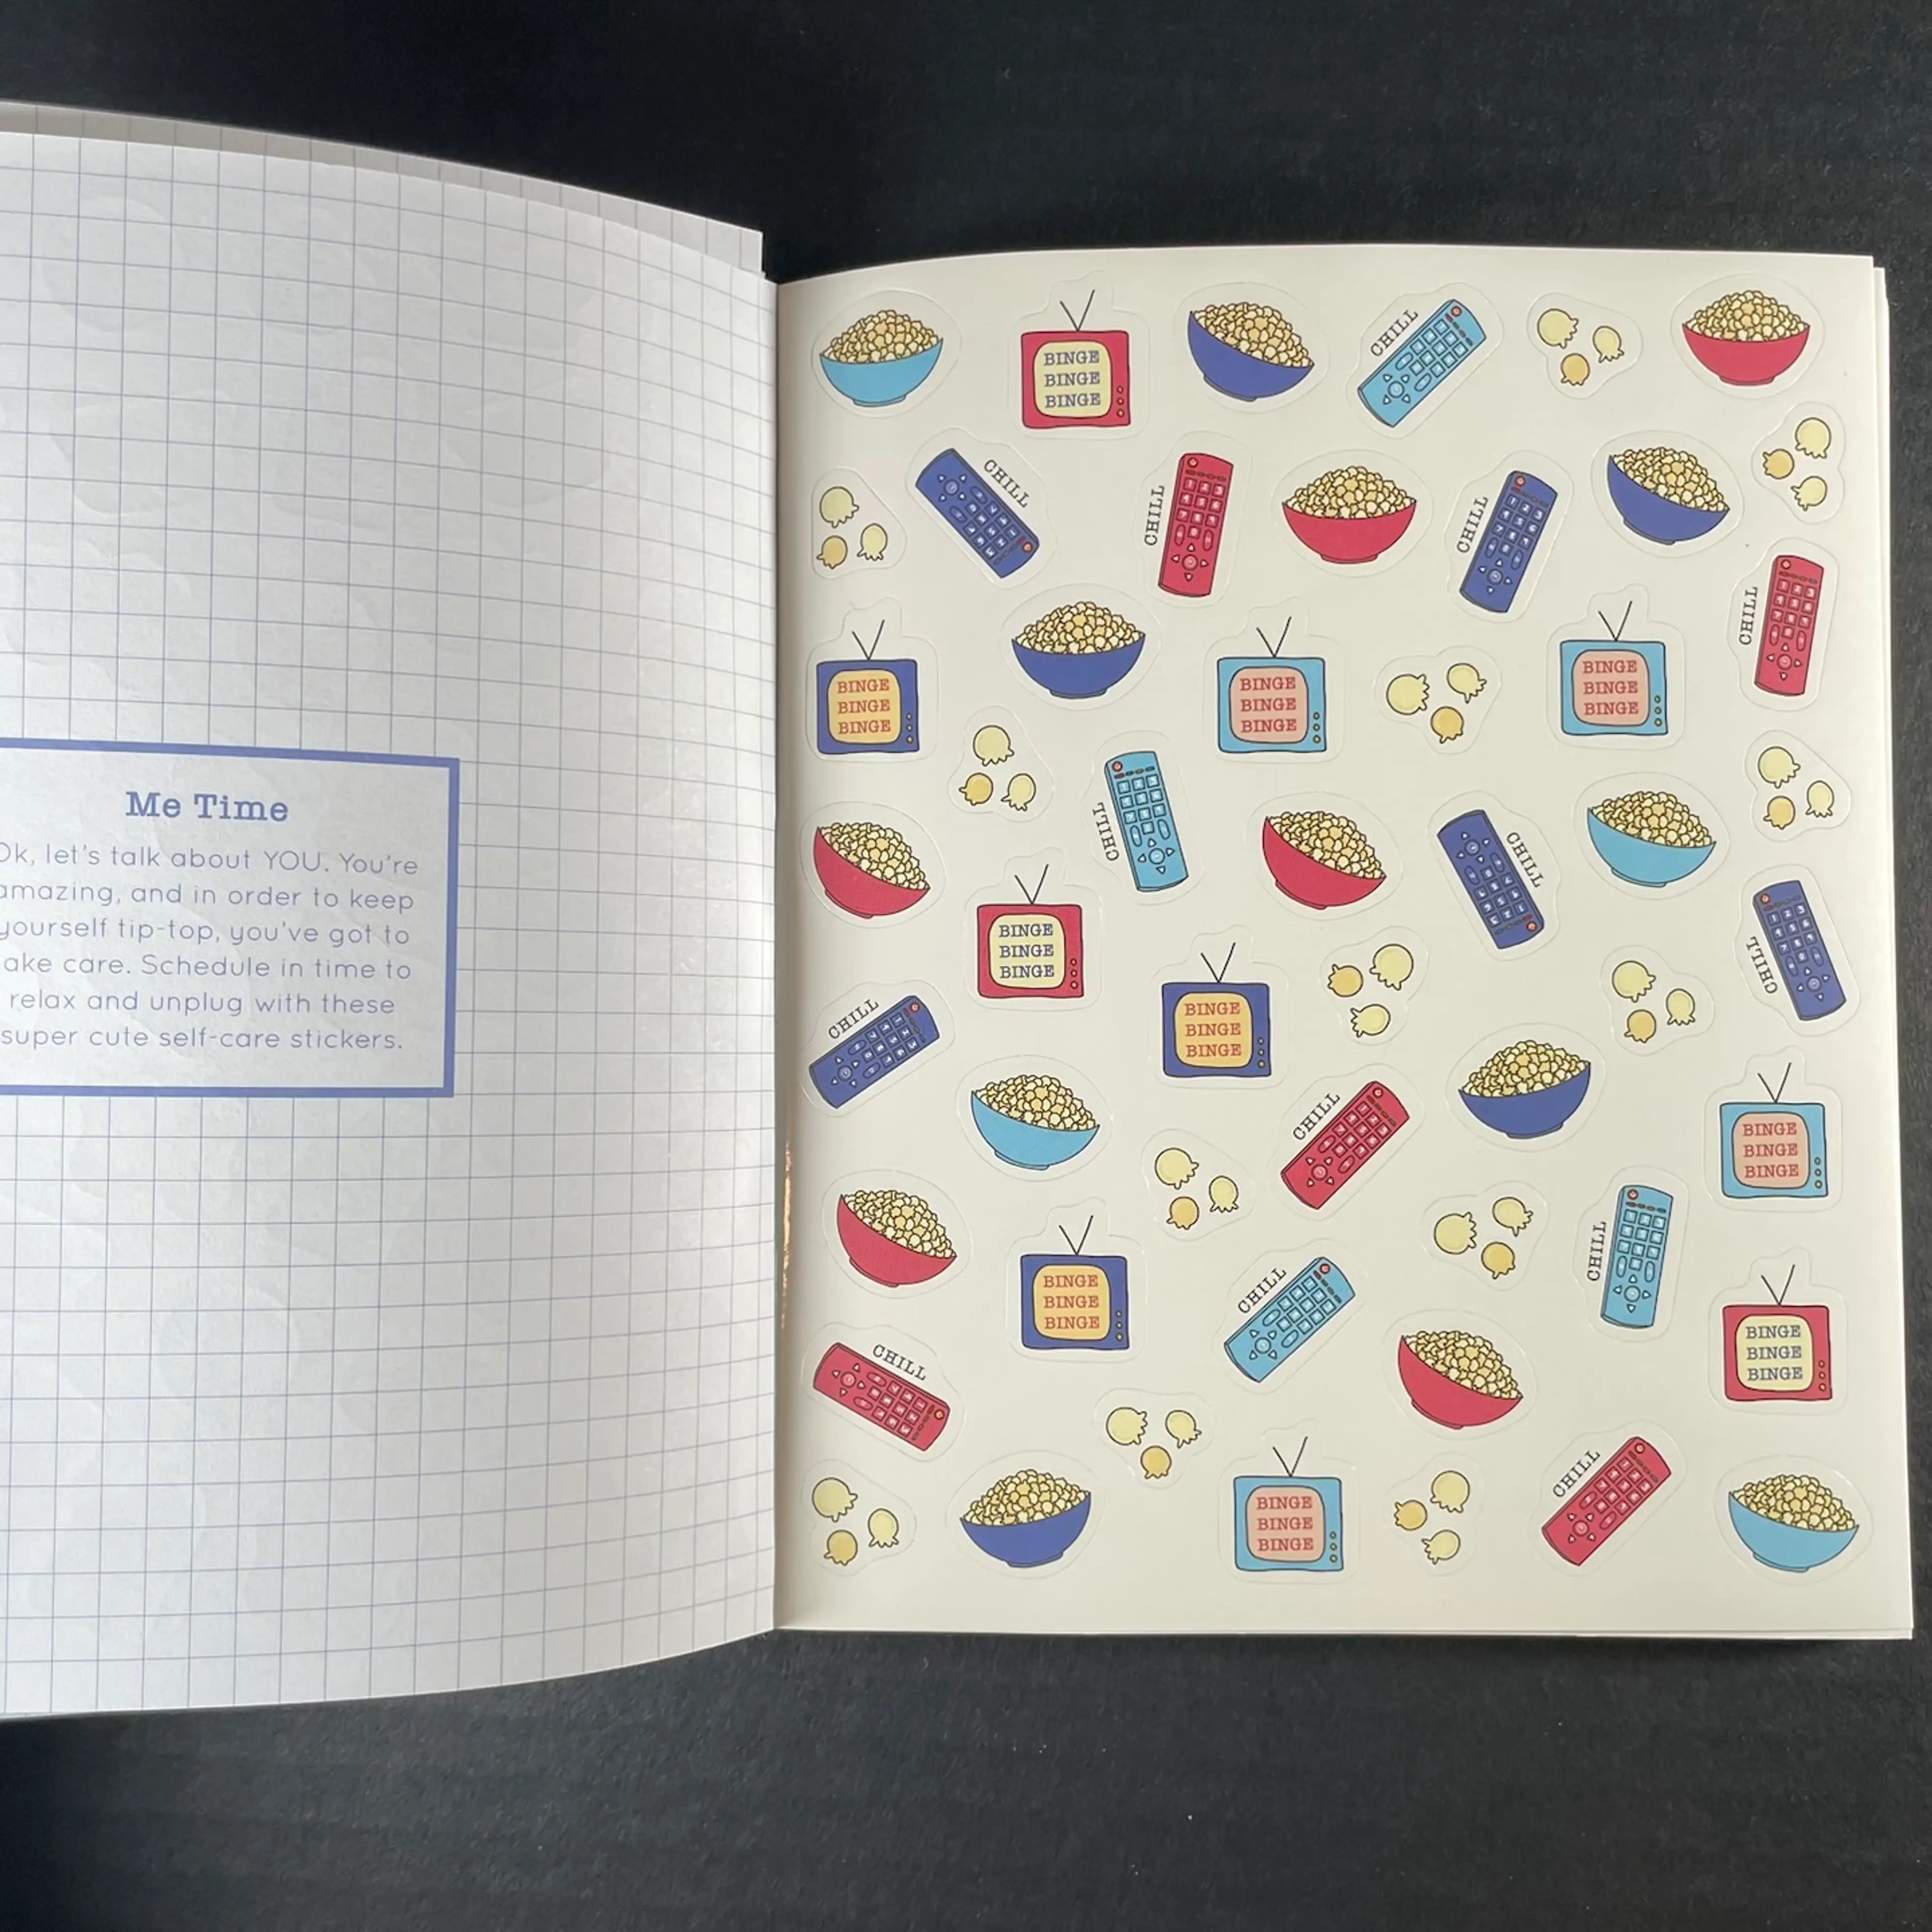 Me Time
Ok, let's talk about YOU. You're
amazing, and in order to keep
yourself tip-top, you've got to
ake care. Schedule in time to
relax and unplug with these
super cute self-care stickers.
BINGE
BINGE
BINGE
CHILL
CHILL
CHILL
CHILL
CHILL
BINGE
BINGE
BINGE
BINGE
BINGE
BINGE
BINGE
BINGE
BINGE
CHILL
CHILL
BINGE
BINGE
BINGE
CHILL
CHILL
BINGE
BINGE
BINGE
CHILL
BINGE
BINGE
BINGE
CHILL
BINGE
BINGE
BINGE
CHILL
BINGE
BINGE
BINGE
CHILL
CHILL
BINGE
BINGE
BINGE